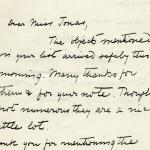 Dear Miss Jonas,
The objects mentioned
in your list arrived safely this
morning. Many thanks for
them & for your note. Though
not numerous they are a nice
little lot.
Thank you for mentioning the